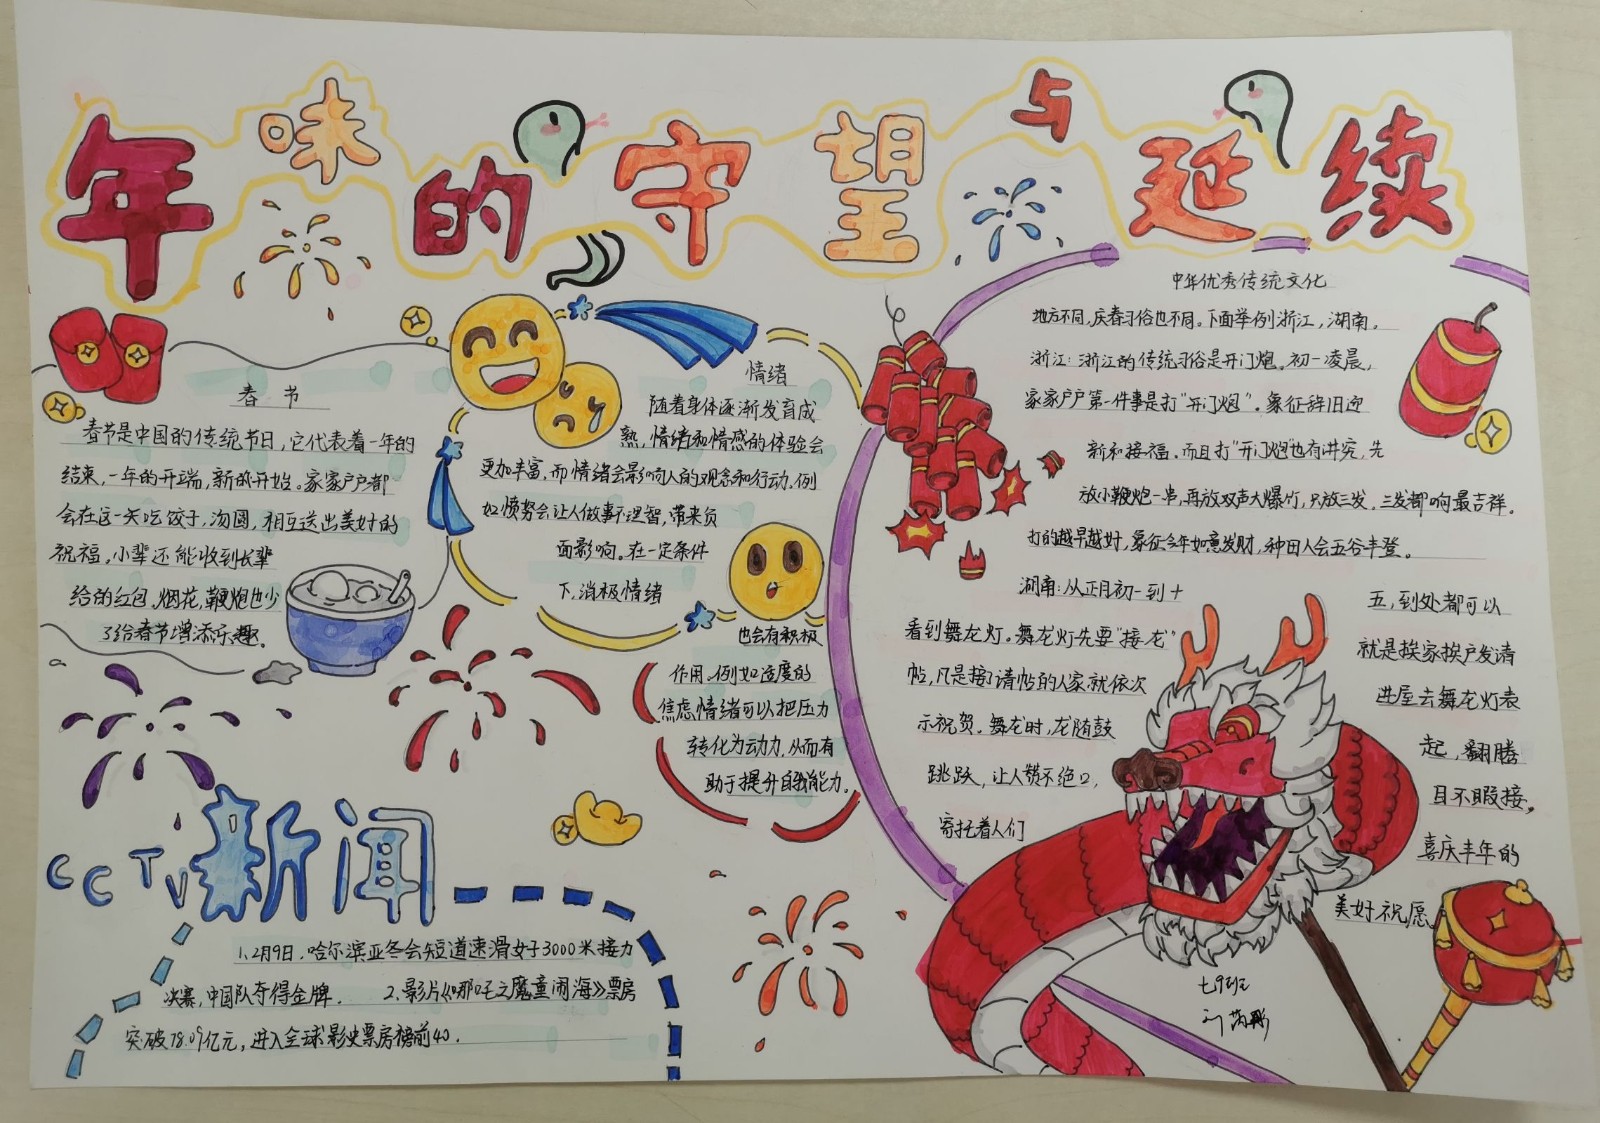 年味的守望与延续
春节
春节是中国的传统节日，它代表着一年的
结束，一年的开端，新的开始。家家户户都
会在这一天吃饺子，汤圆，相互送出美好的
祝福。小辈还能收到长辈
给的红包，烟花，鞭炮也少
了给春节增添乐趣。
情绪
随着身体逐渐发育成
熟，情绪和情感的体验会
更加丰富，而情绪会影响人的观念和行动，例
如愤怒会让人做事不理智，带来负
面影响。在一定条件
下，消极情绪
也会有积极
作用，例如适度的
焦虑情绪可以把压力
转化为动力，从而有
助于提升自我能力。
CCTV新闻
1、2月9日，哈尔滨亚冬会短道速滑女子3000米接力
决赛，中国队夺得金牌。 2、影片《哪吒之魔童闹海》票房
突破78.09亿元，进入全球影史票房榜前40.
中华优秀传统文化
地方不同，庆春习俗也不同。下面举例浙江，湖南。
浙江：浙江的传统习俗是开门炮。初一凌晨，
家家户户第一件事是打“开门炮”。象征辞旧迎
新和接福。而且打“开门炮”也有讲究，先
放小鞭炮一串，再放双声大爆竹，只放三发，三发都响最吉祥。
打的越早越好，象征今年如意发财，种田人会五谷丰登。
湖南：从正月初一到十五，到处都可以
看到舞龙灯。舞龙灯先要“接龙”就是挨家挨户发请
帖，凡是接了请帖的人家就依次进屋去舞龙灯表
示祝贺。舞龙时，龙随鼓起，翻腾
跳跃，让人赞不绝口，目不暇接。
寄托着人们喜庆丰年的
美好祝愿。
七9班